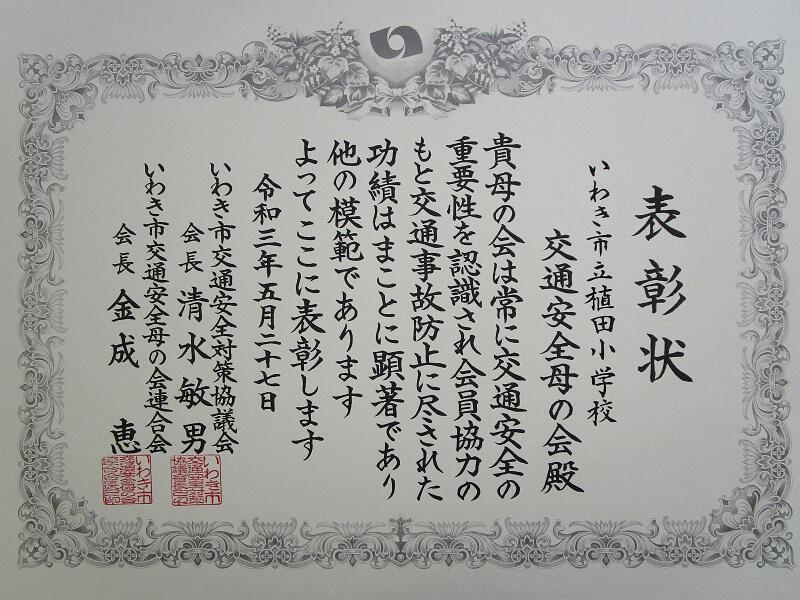 表彰状
いわき市立植田小学校
交通安全母の会殿
貴母の会は常に交通安全の
重要性を認識され会員協力の
もと交通事故防止に尽された
功績はまことに顕著であり
他の模範であります
よってここに表彰します
令和三年五月二十七日
いわき市交通安全対策協議会
会長 清水敏男
いわき市交通安全母の会連合会
会長 金成 恵